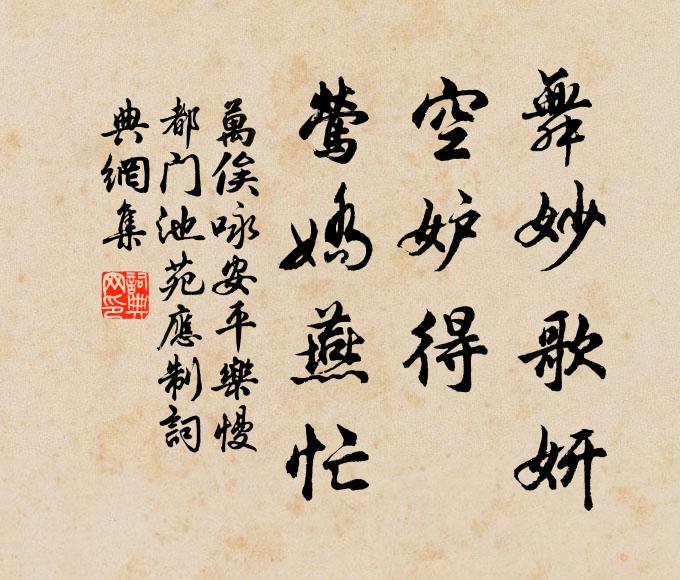 舞妙歌妍
空妒得
鶯嬌燕忙
萬俟咏安平樂慢
都门池苑應制詞
典網集
詞典网印